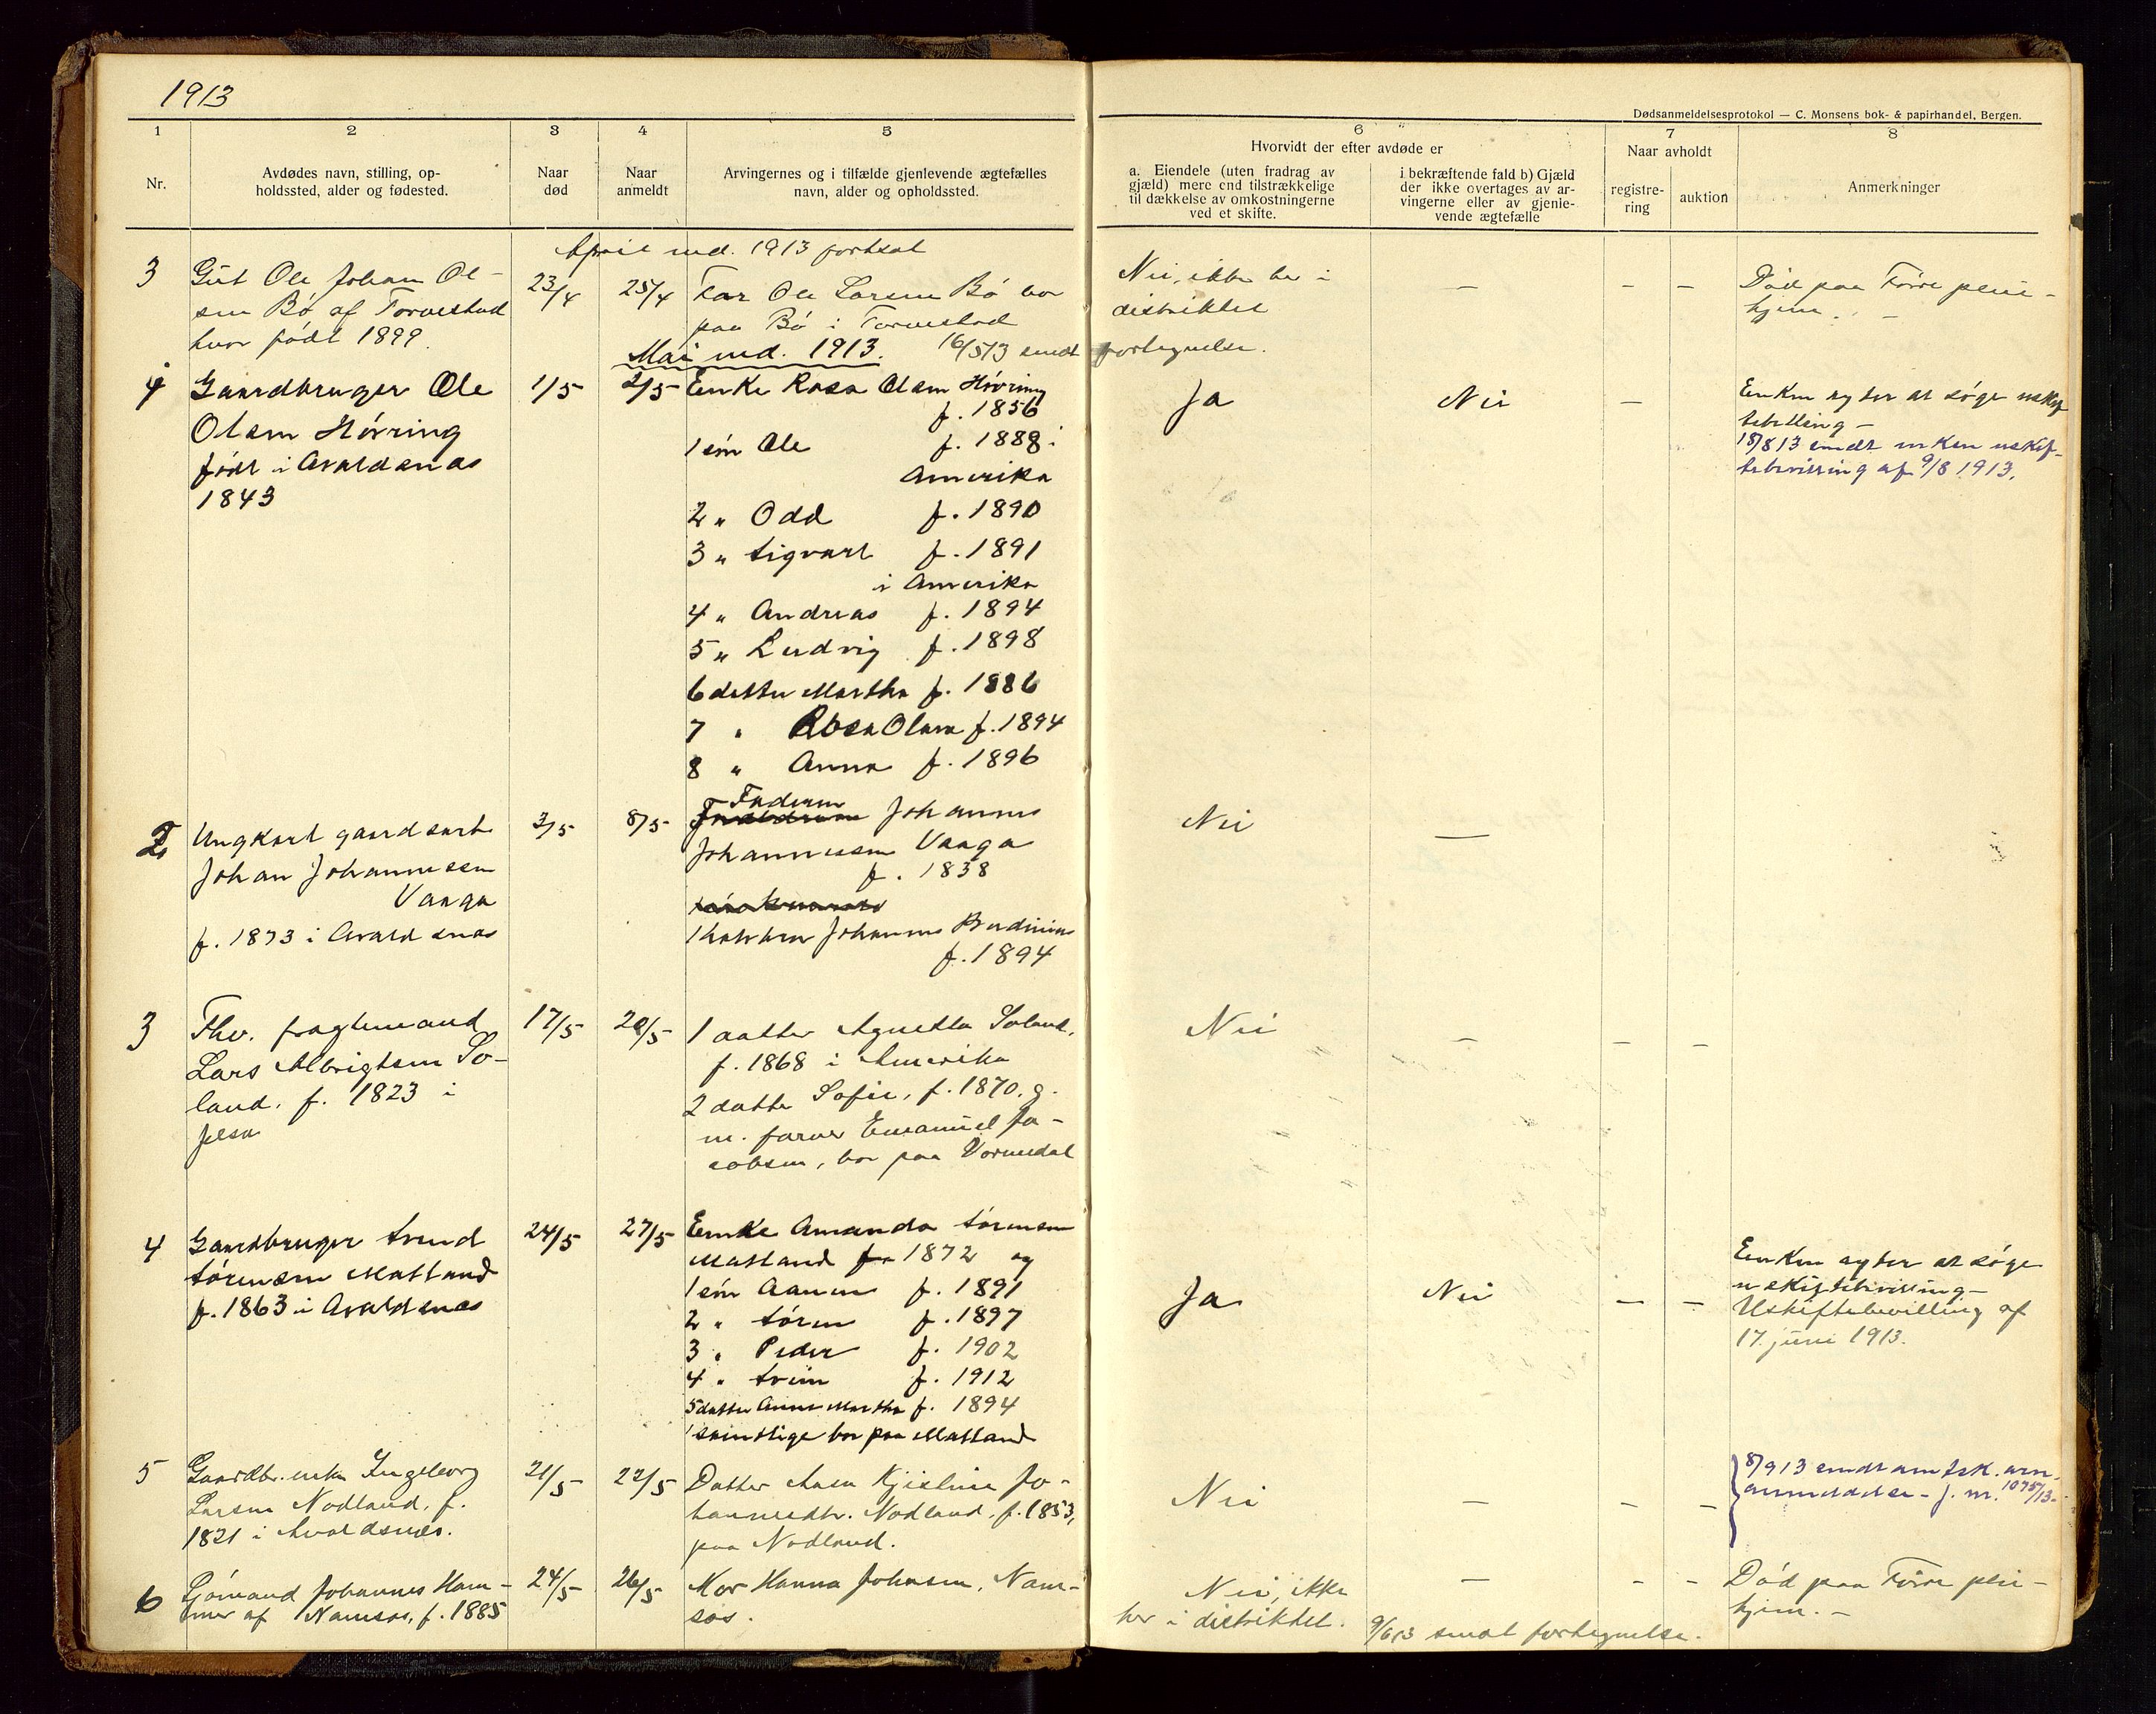 1913
Dødsanmeldelsesprotokol — C. Monsens bok- & papirhandel, Bergen.
1 2 3 4 5 6 7 8
Nr.
Avdødes navn, stilling, op-
holdssted, alder og fødested.
Naar
død
Naar
anmeldt
Arvingernes og i tilfælde gjenlevende ægtefælles
navn, alder og opholdssted.
Hvorvidt der efter avdøde er
a. Eiendele (uten fradrag av
gjæld) mere end tilstrækkelige
til dækkelse av omkostningerne
ved et skifte.
i bekræftende fald b) Gjæld
der ikke overtages av ar-
vingerne eller av gjenle-
vende ægtefælle
Naar avholdt
registre-
ring
auktion
Anmerkninger
April md. 1913 fortsat
3
Gut Ole Johan Ol-
sen Bö af Torvestad
hvor födt 1899.
23/4
25/4
Far Ole Larsen Bö bor
paa Bö i Torvestad
Nei, ikke her i
distriktet
—
-
-
Död paa Förre pleie-
hjem. —
Mai md. 1913.
16/5 13 sendt fortegnelse.
1
Gaardbruger Ole
Olsen Hövring
födt i Avaldsnæs
1843
1/5
2/5
Enke Rasa Olsen Hövring
f. 1856
1 sön Ole f. 1888 i
Amerika
2 " Odd f. 1890
3 " Sigvart f. 1891
i Amerika
4 " Andreas f. 1894
5 " Ludvig f. 1898
6 datter Martha f. 1886
7 " Rosa Olava f. 1894
8 " Anna f. 1896
Ja
Nei
—
Enken agter at söge uskif
tebevilling —
18/8 13 sendt enken uskif-
tebevilling af 9/8 1913.
2
Ungkarl gaardsarb.
Johan Johannessen
Vaaga
f. 1873 i Avaldsnæs
3/5
8/5
Faderen
Johannes
Johannessen Vaaga
f. 1838
1 Johannes
f. 1894
Nei
—
3
Fhv. fragtemand
Lars Albrigtsen So-
land, f. 1823 i
Jelsa
17/5
20/5
1 datter Agnetha Soland,
f. 1868 i Amerika
2 datter Sofie, f. 1870, g.
m. farver Emanuel Ja-
cobsen, bor paa Vormedal
Nei
—
-
-
4
Gaardbruger Svend
Sörensen Matland
f. 1863 i Avaldsnæs
24/5
27/5
Enke Amanda Sörensen
Matland f. 1872 og
1 sön Aanen f. 1891
2 " Sören f. 1897
3 " Peder f. 1902
4 " Svein f. 1912
5 datter Anne Martha f. 1894
samtlige bor paa Matland
Ja
Nei
—
—
Enken agter at söge
uskiftebevilling —
Uskiftebevilling af
17. juni 1913.
5
Gaardbr.enke Ingeborg
Larsen Nodland, f.
1821 i Avaldsnæs.
21/5
22/5
Datter Aasa Kjistine Jo-
hannesdtr. Nodland, f. 1853,
paa Nodland.
Nei
—
-
-
8/9 13 sendt amtsk. arv-
anmeldelse - j. nr. 1075/13-
6
Sjömand Johannes Ham-
mer af Namsos, f. 1885
24/5
26/5
Mor Hanna Johnsen, Nam-
sos.
Nei, ikke
her i distriktet.
—
-
-
Död paa Förre plei-
hjem. —
9/6 13 sendt fortegnelse.